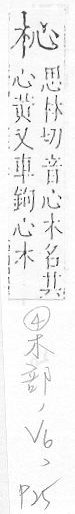 杺
思林切音心木名其
心黄又車鉤心木
④木部,V6,
P25